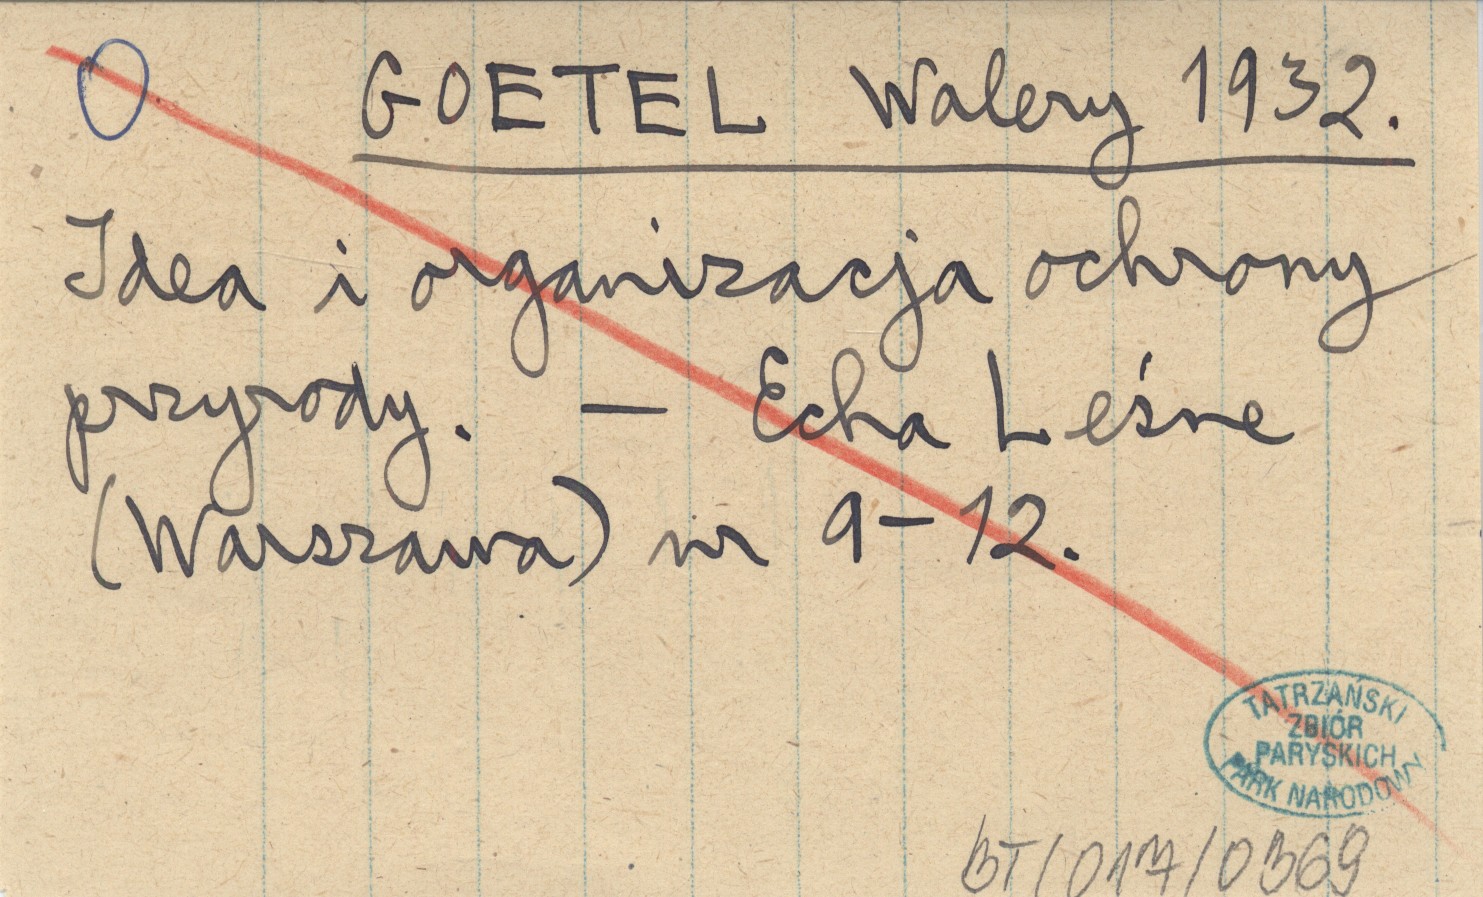 GOETEL Walery 1932.
Idea i organizacja ochrony
przyrody. — Echa Leśne
(Warszawa) nr 9-12.
TATRZAŃSKI
ZBIÓR
PARYSKICH
PARK NARODOWY
BT/017/0369